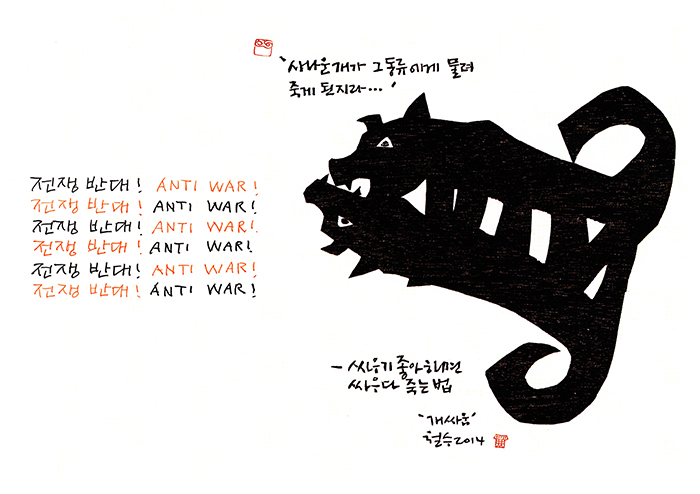 '사나운 개가 그 동류에게 물려
죽게 된지라...'
전쟁 반대! ANTI WAR!
전쟁 반대! ANTI WAR!
전쟁 반대! ANTI WAR!
전쟁 반대! ANTI WAR!
전쟁 반대! ANTI WAR!
전쟁 반대! ANTI WAR!
- 싸우기 좋아하면
싸우다 죽는 법
"개싸움"
철수 2014